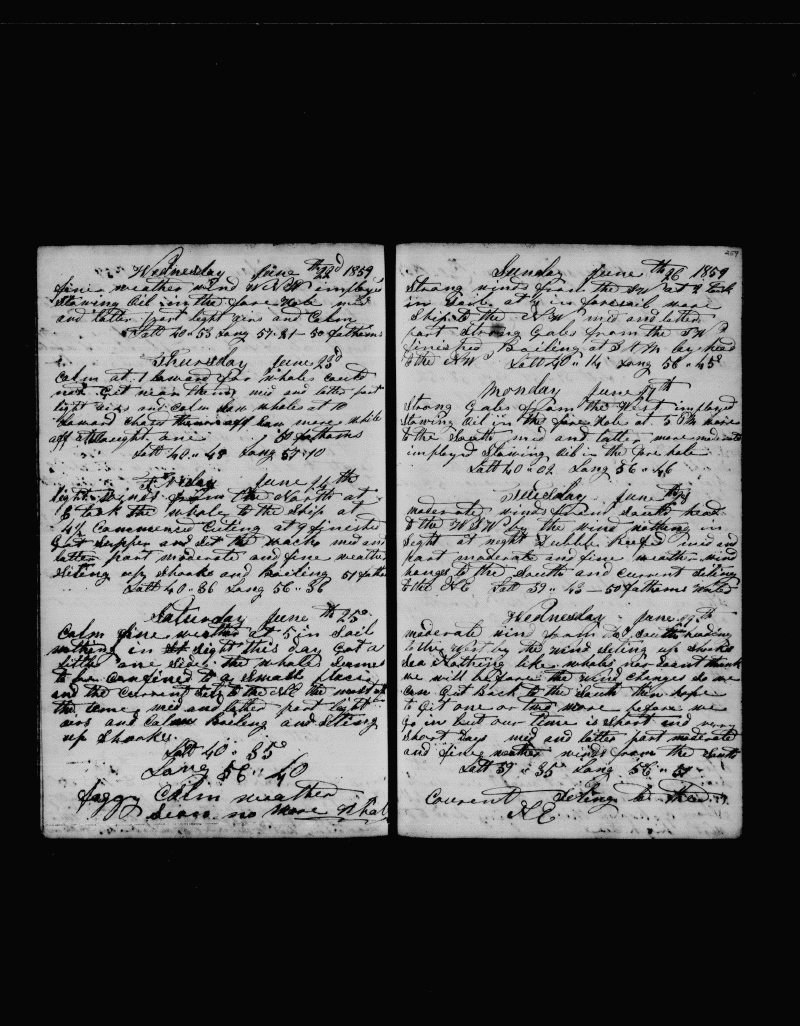 Wednesday June 22nd 1859
fine weather wind W N W imployed
Stowing Oil in the fore hole mid
and latter part light airs and Calm
Latt 40 " 53 Long 57 " 21 - 50 fathoms
Thursday June 23d
Calm at 1 lowerd for Whales could
not Get near them mid and latter part
light airs and Calm saw whales at 10
lowerd chased them off saw more while
off at one
50 fathoms
Latt 40 " 48 Long 57 " 10
Friday June 24th
light Winds from the North at
took the whale to the Ship at
Commence Cuting at 9 finished
Got Supper and Set the watch mid and
latter part moderate and fine weather
Seting up Shooks and boiling 51 fathoms
Latt 40 " 36 Long 56 " 36
Saturday June th 25
Calm fine weather at 5 in Sail
nothing in sight this day Got a
little one side the whales seemes
to be confined to a small place
and the Current Sets to the NE the most of
the time mid and latter part light
airs and Calm boiling and Seting
up Shooks
Latt 40 " 35
Long 56 " 40
foggy Calm weather
Sease no more Whal
459
Sunday June th 26 1859
Strong winds from the SW at 8 took
in Sail at in foresail wore
Ship to the NW mid and latter
part Strong Gales from the SW
finished Boiling at by head
to the NW Latt 40 " 14 Long 56 " 45
Monday June 27th
Strong Gales from the West imployed
Stowing Oil in the fore hole at 5 wore
to the South mid and latter more moderate
imployed Stowing Oil in the fore hole
Latt 40 " 02 Long 56 " 46
Tuesday June th 28
moderate winds from South head
to the W S W by the wind nothing in
Sight at night Dubble Reefed mid and
part moderate and fine weather wind
hanges to the South and Current Seting
to the NE Latt 39 " 43 - 50 fathoms water
Wednesday June 29th
moderate wind from the South heading
to the West by the wind Seting up Shooks
Sea Nothing like whales nor dont think
we will before the wind changes so we
can Get Back to the South then hope
to Get one or two more before we
Go in but our time is Short and very
Short Days mid and latter part moderate
and fine weather winds from the South
Latt 39 " 35 Long 56 " 51
Current Seting to the
NE